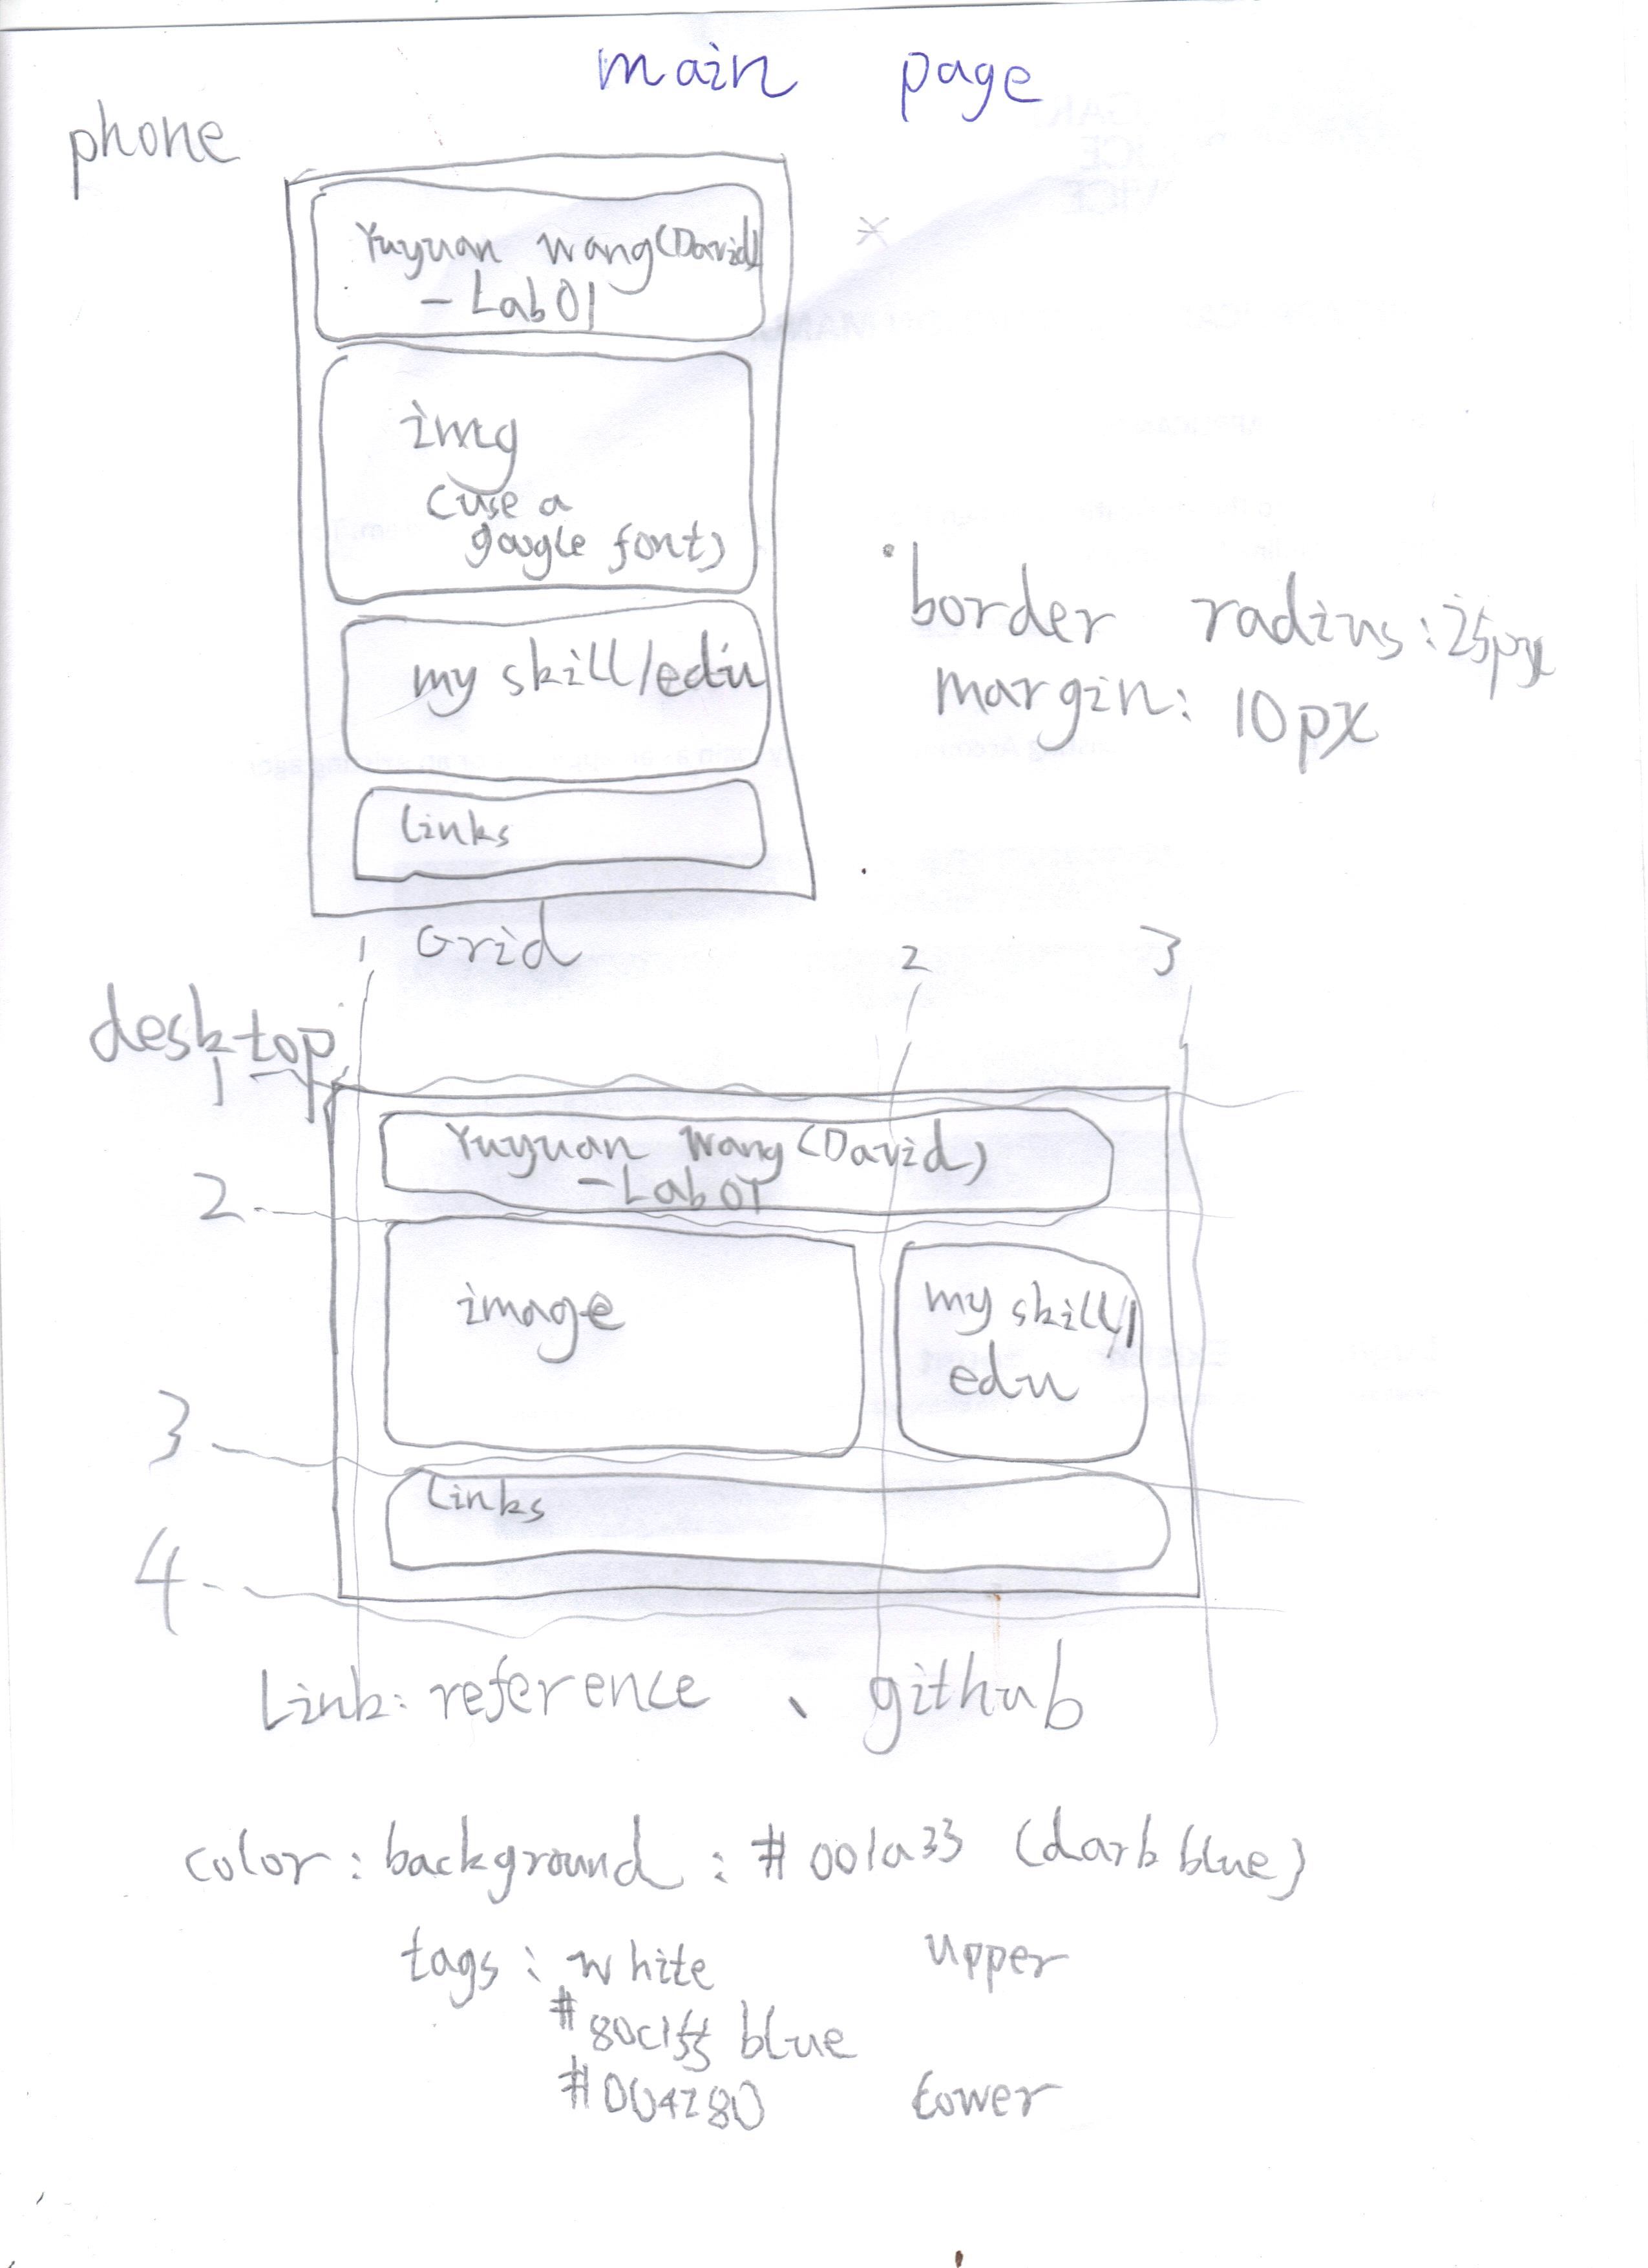 main page
phone
Yuyuan Wang(David)
- Lab01
img
(use a
google font)
my skill/edu
Links
border radius: 25px
margin: 10px
Grid
1 2 3
desktop
1
Yuyuan Wang (David)
- Lab 01
2
image
my skill/
edu
3
Links
4
Link: reference 、 github
color: background: #001a33 (dark blue)
tags: white upper
#80c1ff blue
#004280 lower